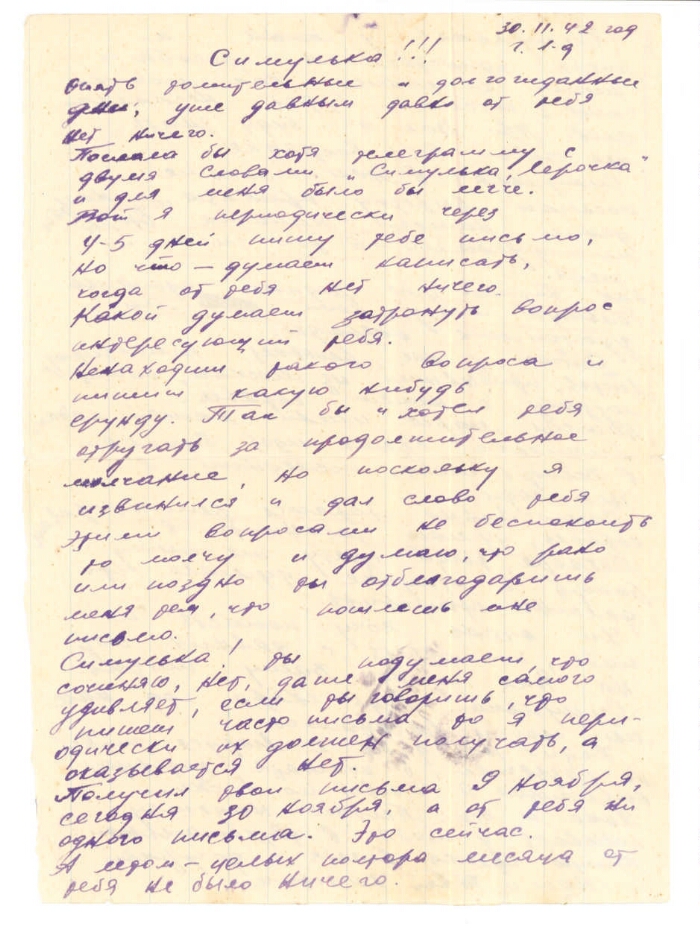 30.11.42 год
г. 1-д
Симулька!!!
Опять томительные и долгожданные
дни, уже давным давно от тебя
нет ничего.
Послала бы хотя телеграмму с
двумя словами "Симулька, Лерочка"
и для меня было бы легче.
Вот я периодически через
4-5 дней пишу тебе письмо,
но что – думаеш написать,
когда от тебя нет ничего.
Какой думаеш затронуть вопрос
интересующий тебя.
Ненаходиш такого вопроса и
пишиш какую нибудь
ерунду. Так бы и хотел тебя
отругать за продолжительное
молчание, но поскольку я
извинился и дал слово тебя
этими вопросами не беспокоить
то молчу и думаю, что рано
или поздно ты отблагодаришь
меня тем, что пошлешь мне
письмо.
Симулька! ты подумаеш, что
сочиняю, нет, даже меня самого
удивляет, если ты говоришь, что
пишеш часто письма то я пери-
одически их должен получать, а
оказывается нет.
Получил твои письма 9 ноября,
сегодня 30 ноября, а от тебя ни
одного письма. Это сейчас.
А летом – целых полтора месяца от
тебя не было ничего.